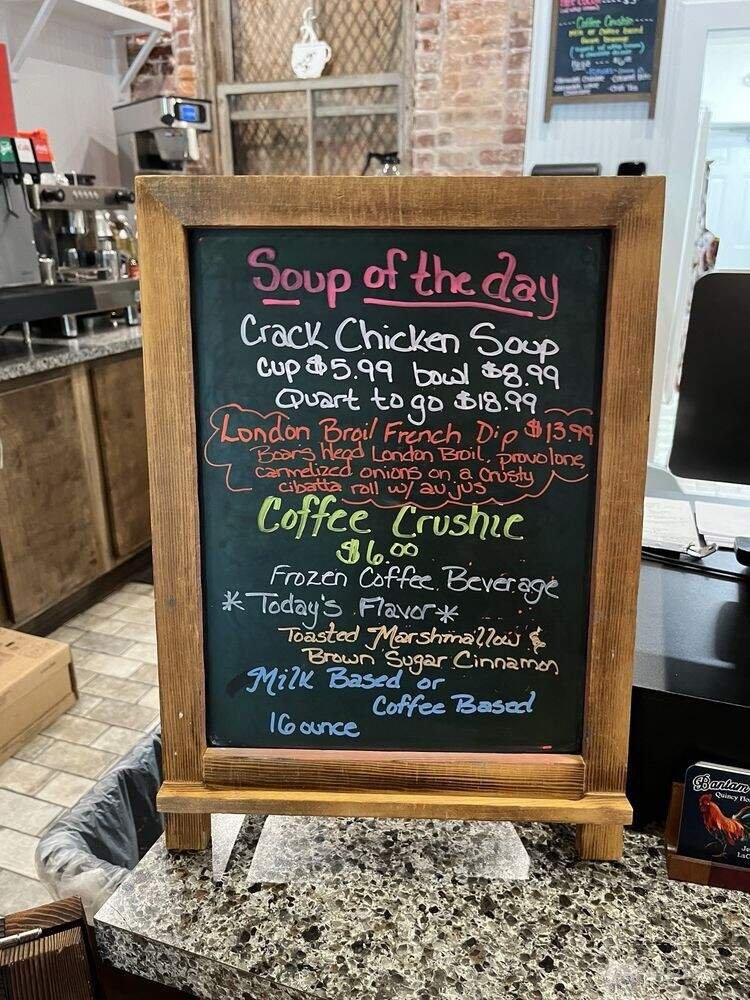 Coffee Crushie
Soup of the day
Crack Chicken Soup
cup $5.99 bowl $8.99
Quart to go $18.99
London Broil French Dip $13.99
Boars Head London Broil, provolone,
carmelized onions on a crusty
cibatta roll w/ au jus
Coffee Crushie
$6.00
Frozen Coffee Beverage
*Today's Flavor*
Toasted Marshmallow &
Brown Sugar Cinnamon
Milk Based or
Coffee Based
16 ounce
Bantam
Quincy